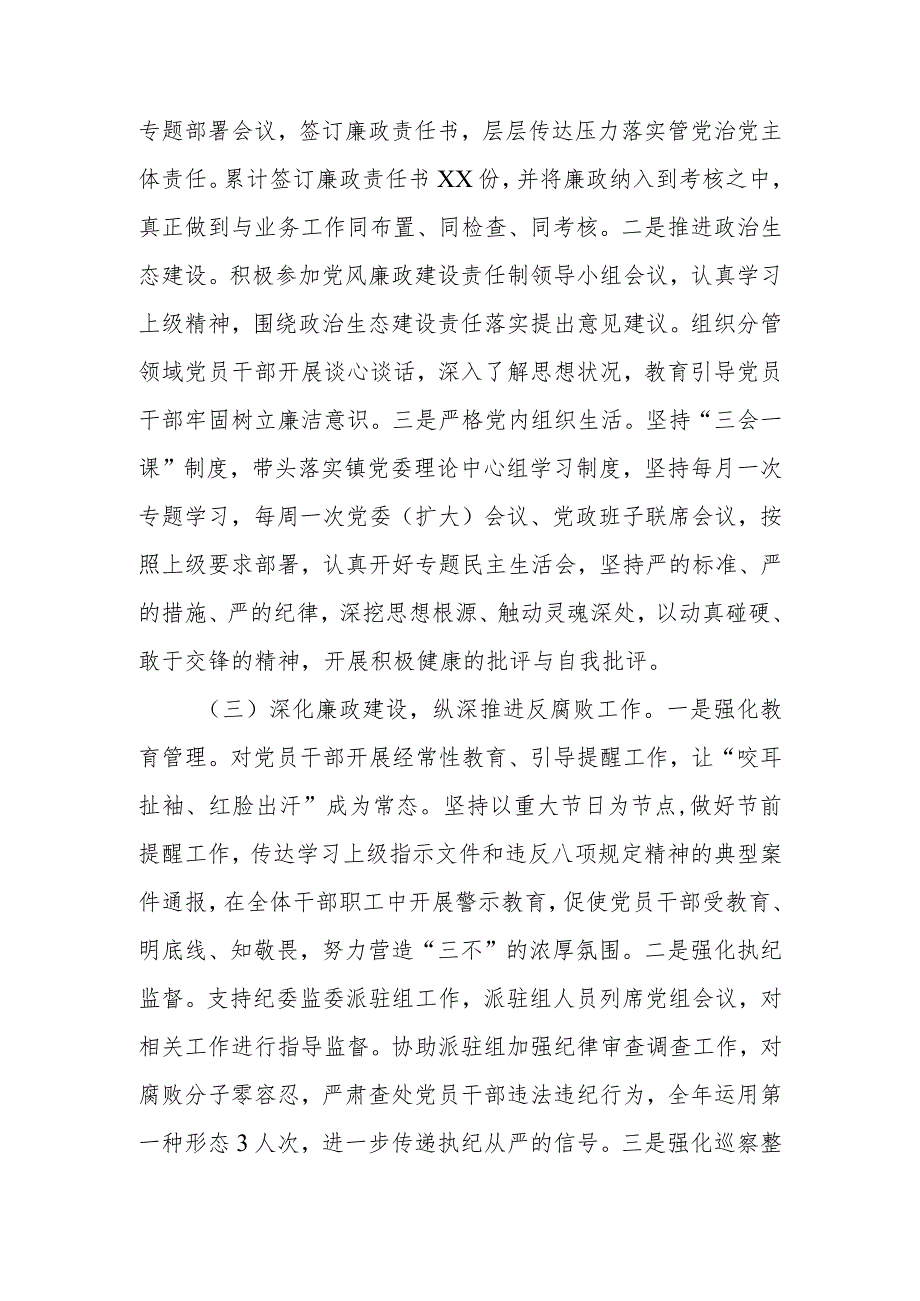 专题部署会议，签订廉政责任书，层层传达压力落实管党治党主
体责任。累计签订廉政责任书 XX 份，并将廉政纳入到考核之中，
真正做到与业务工作同布置、同检查、同考核。二是推进政治生
态建设。积极参加党风廉政建设责任制领导小组会议，认真学习
上级精神，围绕政治生态建设责任落实提出意见建议。组织分管
领域党员干部开展谈心谈话，深入了解思想状况，教育引导党员
干部牢固树立廉洁意识。三是严格党内组织生活。坚持“三会一
课”制度，带头落实镇党委理论中心组学习制度，坚持每月一次
专题学习，每周一次党委（扩大）会议、党政班子联席会议，按
照上级要求部署，认真开好专题民主生活会，坚持严的标准、严
的措施、严的纪律，深挖思想根源、触动灵魂深处，以动真碰硬、
敢于交锋的精神，开展积极健康的批评与自我批评。
（三）深化廉政建设，纵深推进反腐败工作。一是强化教
育管理。对党员干部开展经常性教育、引导提醒工作，让“咬耳
扯袖、红脸出汗”成为常态。坚持以重大节日为节点,做好节前
提醒工作，传达学习上级指示文件和违反八项规定精神的典型案
件通报，在全体干部职工中开展警示教育，促使党员干部受教育、
明底线、知敬畏，努力营造“三不”的浓厚氛围。二是强化执纪
监督。支持纪委监委派驻组工作，派驻组人员列席党组会议，对
相关工作进行指导监督。协助派驻组加强纪律审查调查工作，对
腐败分子零容忍，严肃查处党员干部违法违纪行为，全年运用第
一种形态 3 人次，进一步传递执纪从严的信号。三是强化巡察整